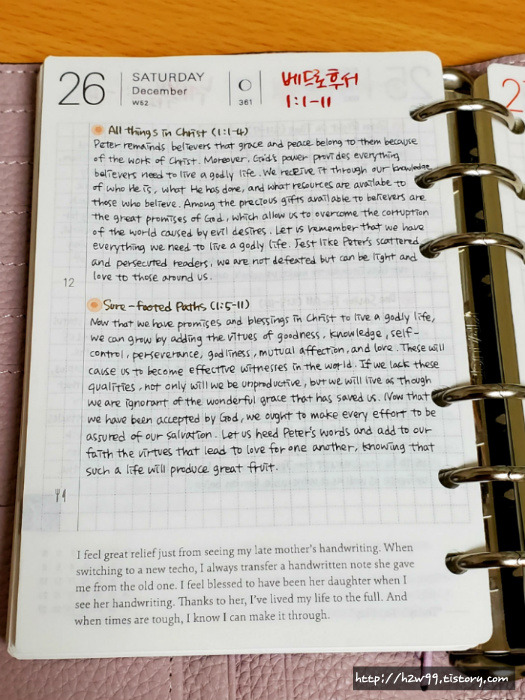 26
SATURDAY
December
W52
361
베드로후서
1:1-11
All things in Christ (1:1-4)
Peter remainds believers that grace and peace belong to them because
of the work of Christ. Moreover, God's power provides everything
believers need to live a godly life. We receive it through our knowledge
of who He is, what He has done, and what resources are availabe to
those who believe. Among the precious gifts available to believers are
the great promises of God, which allow us to overcome the corruption
of the world caused by evil desires. Let us remember that we have
everything we need to live a godly life. Jest like Peter's scattered
and persecuted readers, we are not defeated but can be light and
love to those around us.
12
Sure-footed Paths (1:5-11)
Now that we have promises and blessings in Christ to live a godly life,
we can grow by adding the virtues of goodness, knowledge, self-
control, perseverance, godliness, mutual affection, and love. These will
cause us to become effective witnesses in the world. If we lack these
qualities, not only will we be unproductive, but we will live as though
we are ignorant of the wonderful grace that has saved us. Now that
we have been accepted by God, we ought to make every effort to be
assured of our salvation. Let us heed Peter's words and add to our
faith the virtues that lead to love for one another, knowing that
such a life will produce great fruit.
I feel great relief just from seeing my late mother's handwriting. When
switching to a new techo, I always transfer a handwritten note she gave
me from the old one. I feel blessed to have been her daughter when I
see her handwriting. Thanks to her, I've lived my life to the full. And
when times are tough, I know I can make it through.
2
http://h2w99.tistory.com